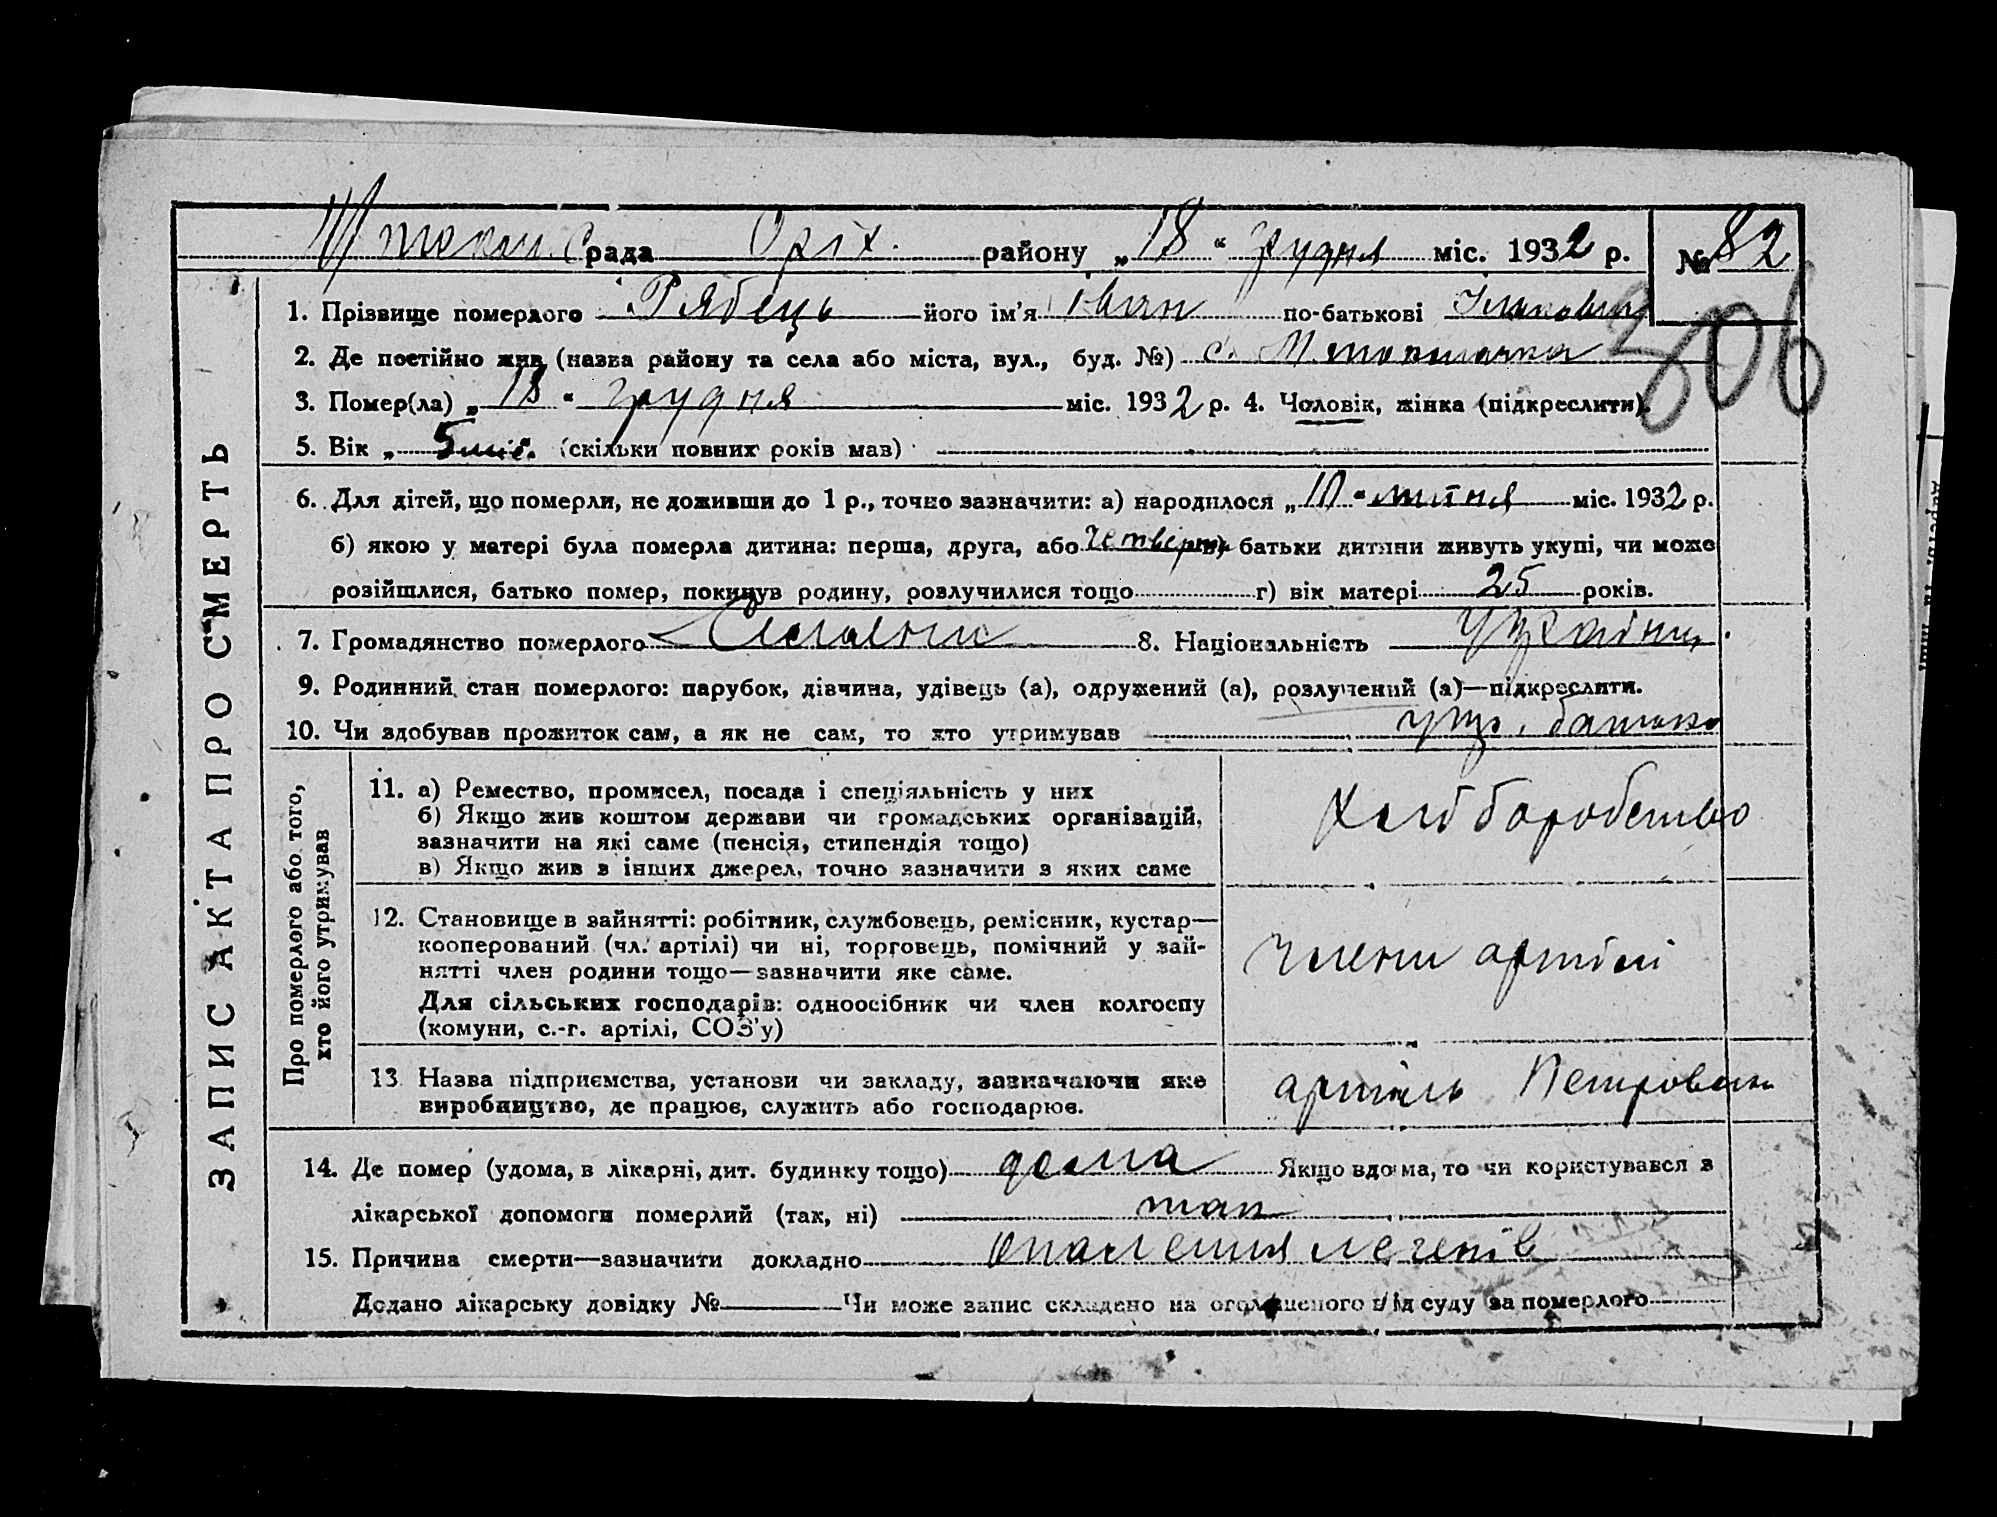 рада Оріх. району „18“ грудня міс. 1932 р. № 82
306
ЗАПИС АКТА ПРО СМЕРТЬ
1. Прізвище померлого Рябець його ім'я Іван по-батькові
2. Де постійно жив (назва району та села або міста, вул., буд. №) с.
3. Помер(ла) „18“ грудня міс. 1932 р. 4. Чоловік, жінка (підкреслити).
5. Вік „5 міс. (скільки повних років мав)
6. Для дітей, що померли, не доживши до 1 р., точно зазначити: а) народилося „10“ липня міс. 1932 р.
б) якою у матері була померла дитина: перша, друга, або четверта батьки дитини живуть укупі, чи може
розійшлися, батько помер, покинув родину, розлучилися тощо г) вік матері 25 років.
7. Громадянство померлого 8. Національність
9. Родинний стан померлого: парубок, дівчина, удівець (а), одружений (а), розлучений (а)—підкреслити.
10. Чи здобував прожиток сам, а як не сам, то хто утримував батько
Про померлого або того,
хто його утримував
11. а) Ремество, промисел, посада і спеціяльність у них
б) Якщо жив коштом держави чи громадських організацій,
зазначити на які саме (пенсія, стипендія тощо)
в) Якщо жив з інших джерел, точно зазначити з яких саме
Хліборобство
12. Становище в зайнятті: робітник, службовець, ремісник, кустар—
кооперований (чл. артілі) чи ні, торговець, помічний у зай-
нятті член родини тощо—зазначити яке саме.
Для сільських господарів: одноосібник чи член колгоспу
(комуни, с.-г. артілі, СОЗ'у)
члени артілі
13 Назва підприємства, установи чи закладу, зазначаючи яке
виробництво, де працює, служить або господарює.
артіль
14. Де помер (удома, в лікарні, дит. будинку тощо) дома Якщо вдома, то чи користувався з
лікарської допомоги померлий (так, ні) так
15. Причина смерти—зазначити докладно легенів
Додано лікарську довідку № Чи може запис складено на оголошеного від суду за померлого